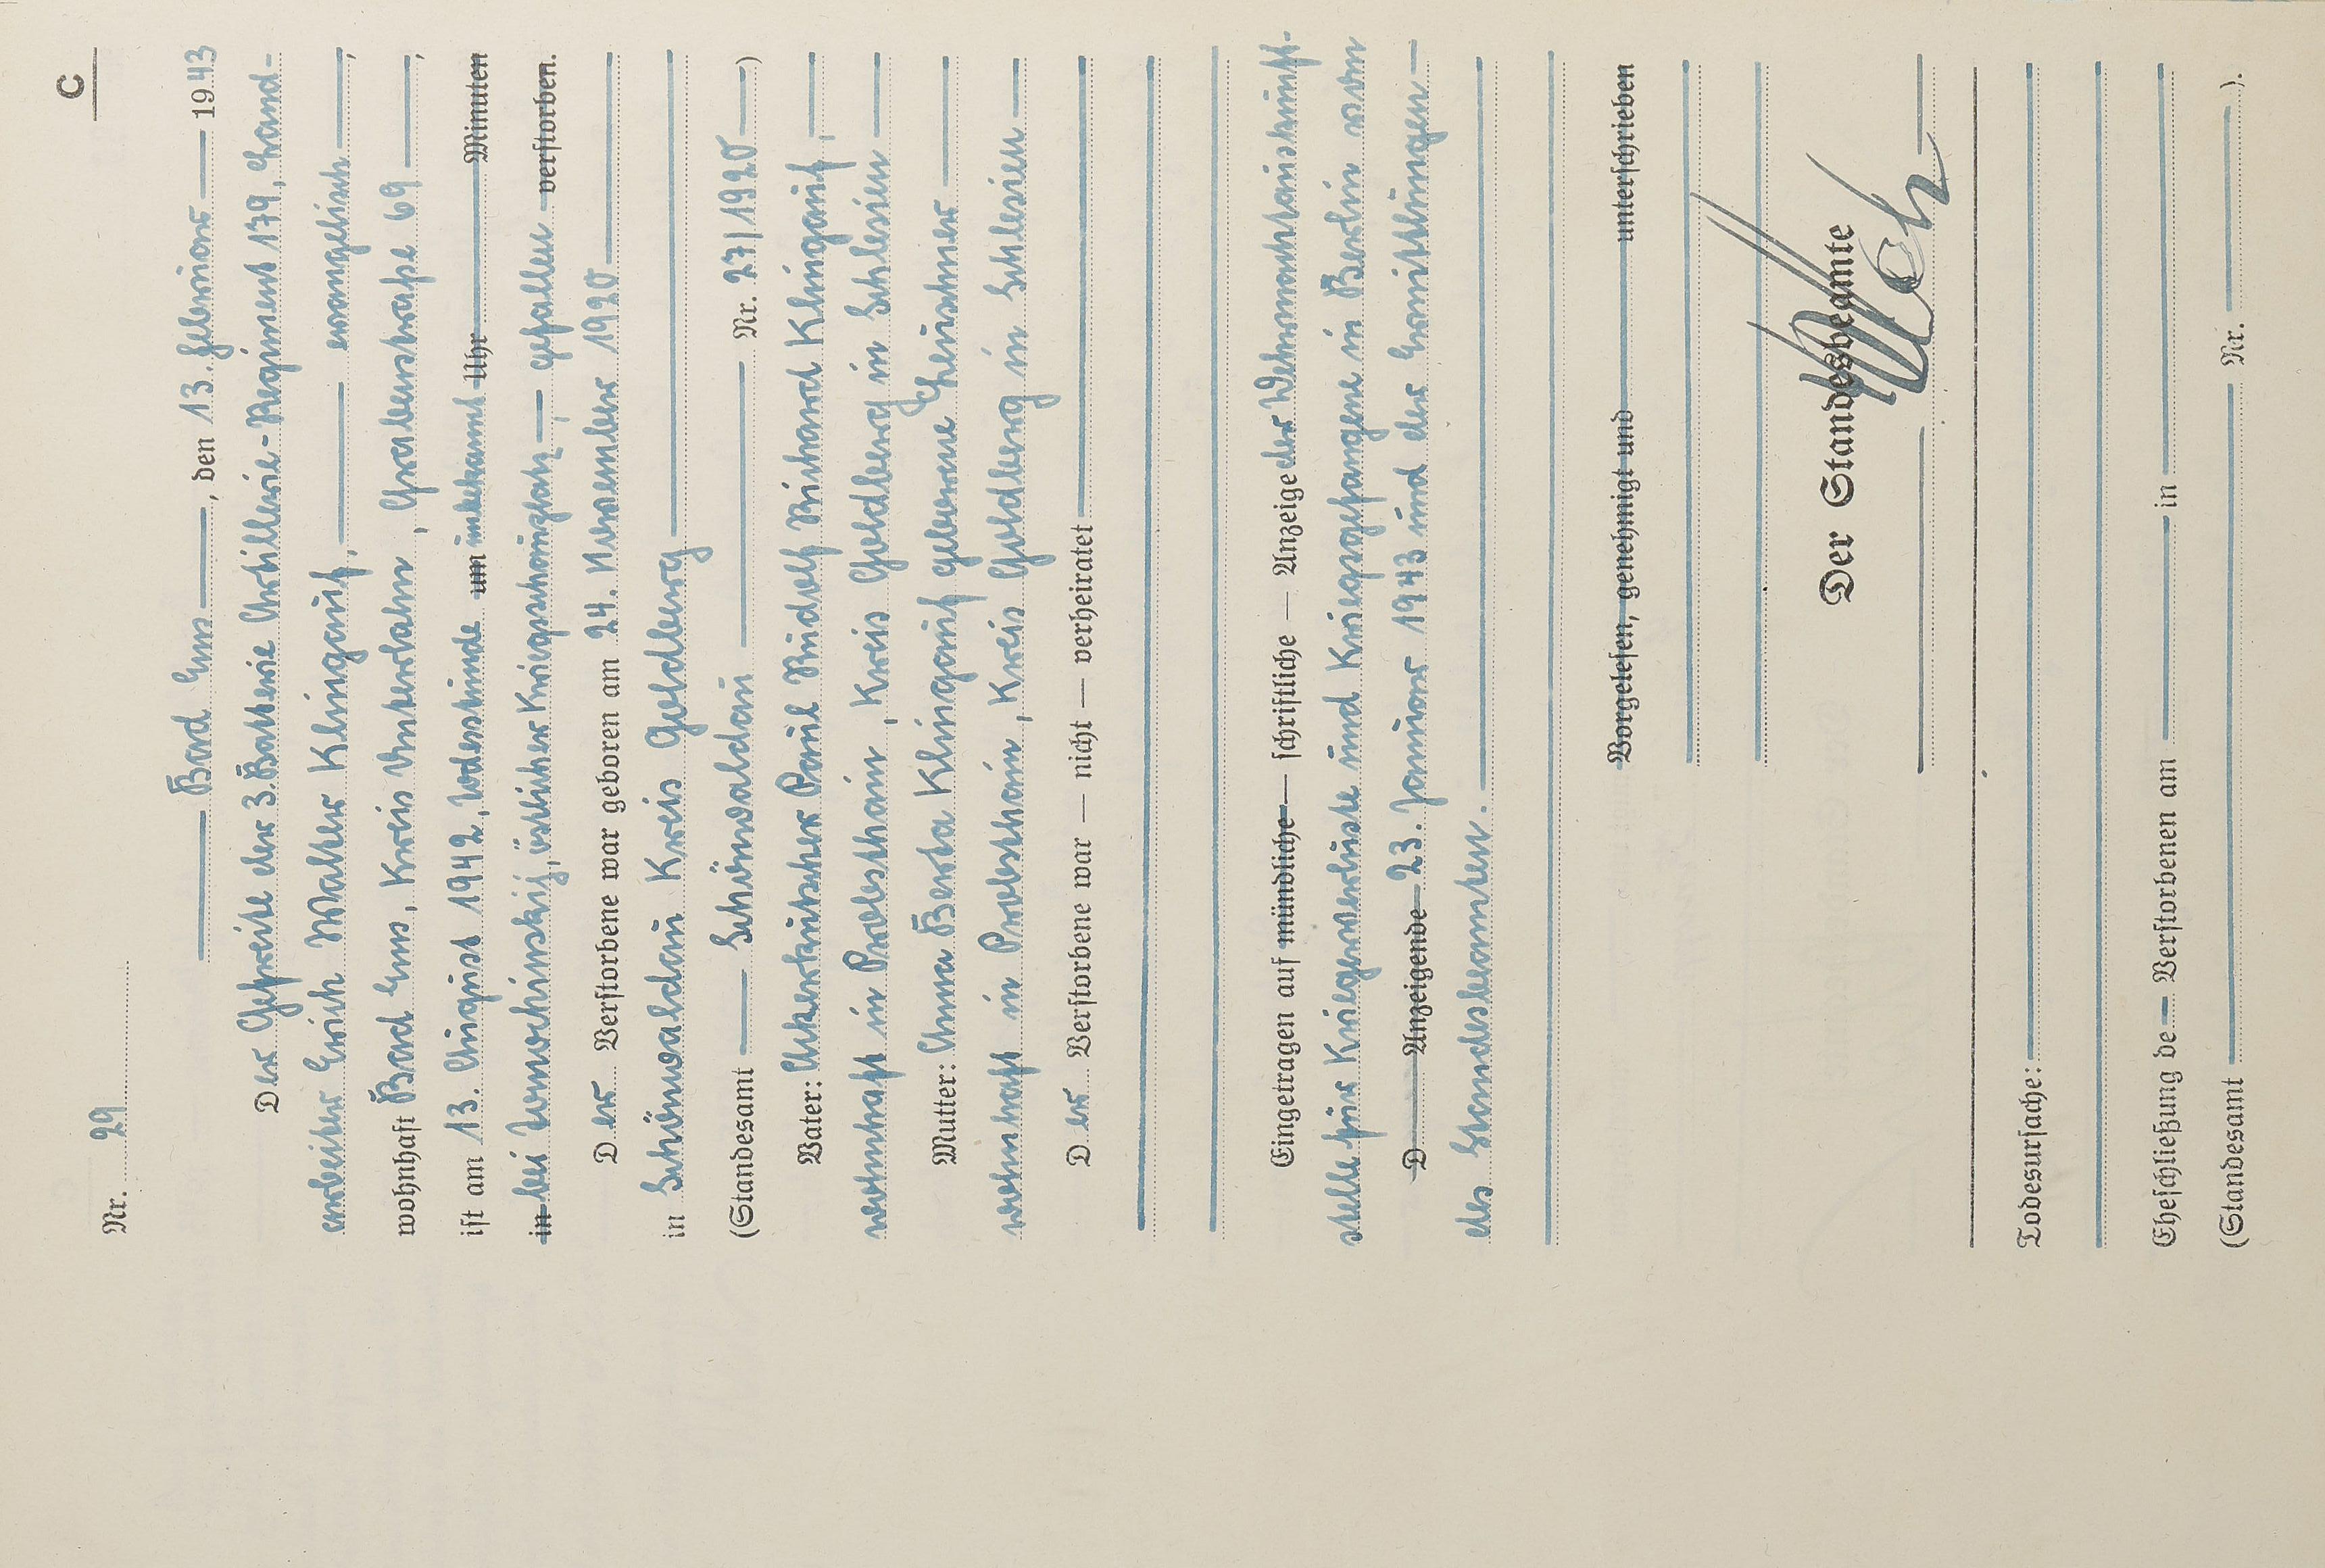 C
Nr. 29
Bad Ems, den 13. Februar 1943
Der Gefreite der 3. Batterie Artillerie-Regiment 179, Land-
arbeiter Erich Walter Klingauf, evangelisch,
wohnhaft Bad Ems, Kreis Unterlahn, Grabenstraße 69,
ist am 13. August 1942, Todesstunde um unbekannt Uhr Minuten
in bei östlicher Kriegsschauplatz, — gefallen verstorben.
Der Verstorbene war geboren am 24. November 1920
in Schönwaldau Kreis Goldberg
(Standesamt Schönwaldau Nr. 27/1920)
Vater: Ackerkutscher Paul Rudolf Richard Klingauf,
wohnhaft in Probsthain, Kreis Goldberg in Schlesien
Mutter: Anna Berta Klingauf geborene
wohnhaft in Probsthain, Kreis Goldberg in Schlesien
Der Verstorbene war — nicht — verheiratet
Eingetragen auf mündliche — schriftliche — Anzeige der Wehrmachtauskunft-
stelle für Kriegerverluste und Kriegsgefangene in Berlin vom
D Anzeigende 23. Januar 1943 und der Ermittlungen
des Standesbeamten.
Vorgelesen, genehmigt und unterschrieben
Der Standesbeamte
Todesursache:
Eheschließung de Verstorbenen am in
(Standesamt Nr. ).